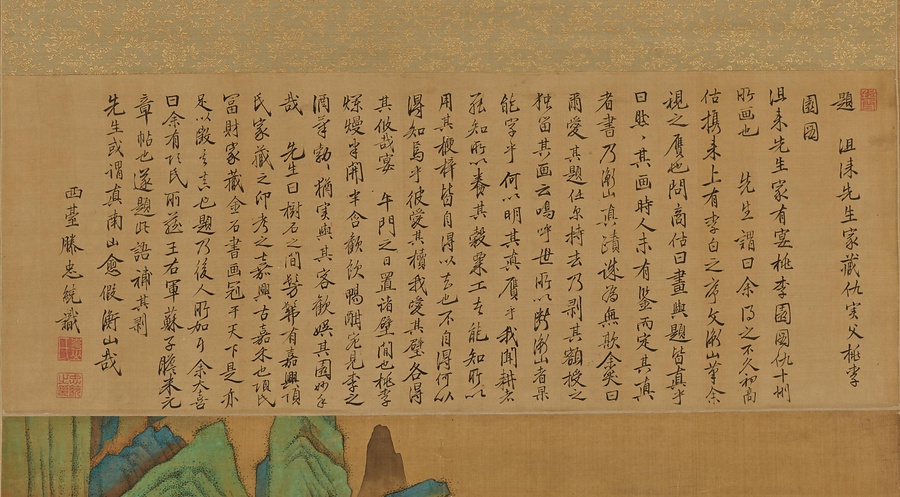 題 徂徠先生家藏仇実父桃李
園図
徂来先生家有宴桃李園図仇十州
所画也 先生謂曰余得之不久初商
估携来上有李白之序文衡山筆余
視之贋也問商估曰畫與題皆真乎
曰然其画時人未有鑒而定其真
者書乃衡山真蹟誰為無欺余笑曰
爾愛其題任尓持去乃剥其額授之
独留其画云嗚呼世所以断衡山者果
能罕乎何以明其真贋乎我聞耕者
能知所以養其穀粟工者能知所以
用其楩梓皆自得以去也不自得何以
得知焉乎彼愛其櫝我愛其璧各得
其攸哉宴 午門之日置諸壁間也桃李
爛熳半開半含歓飲暢酣宛見李之
酒筆勃猶実與其客歓娯其園妙手
哉 先生曰樹石之間髣髴有嘉興項
氏家藏之印考之嘉興古嘉禾也項氏
冨財家藏金石書画冠乎天下是亦
足以徴言真也題乃後人所加了余大喜
曰余有項氏所蔵王右軍蘇子瞻米元
章帖也遂題此語補其剥
先生或謂真南山愈假衡山哉
西臺滕忠統識